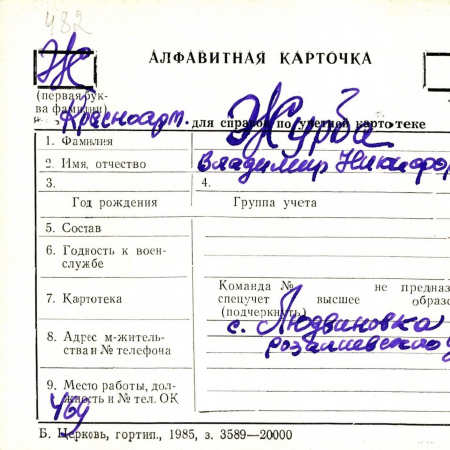 482
Ж
АЛФАВИТНАЯ КАРТОЧКА
(первая бук-
ва фамилии)
Красноарм.
для справок по учетной картотеке
1. Фамилия Журба
2. Имя, отчество Владимир Никифор
3. 4.
Год рождения Группа учета
5. Состав
6. Годность к воен-
службе
Команда № не предназ
7. Картотека спецучет высшее образо
(подчеркнуть)
с. Людвиновка
8. Адрес м-житель-
ства и № телефона
9. Место работы, дол-
жность и № тел. ОК
469
Б. Церковь, гортип., 1985, з. 3589—20000